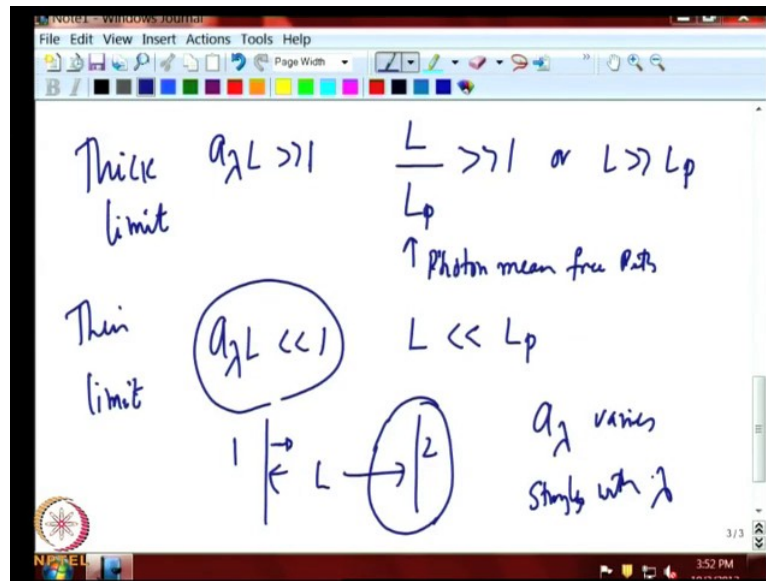 Note1 - Windows Journal
File Edit View Insert Actions Tools Help
Page Width
B I
Thick a_λ L >>1 L/L_p >>1 or L >> L_p
limit
↑ Photon mean free Path
Thin a_λ L << 1 L << L_p
limit
1 L 2 a_λ varies
strongly with λ
3/3
NPTEL
3:52 PM